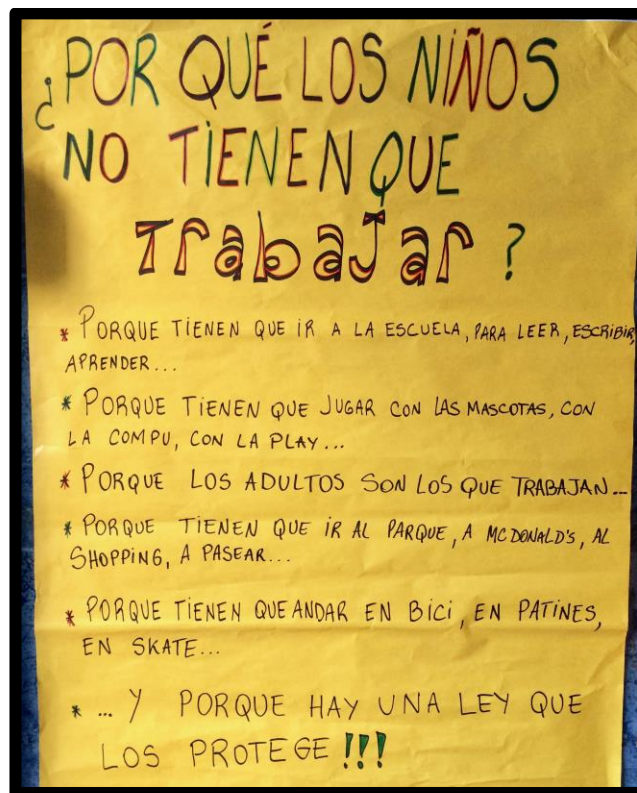 ¿POR QUÉ LOS NIÑOS
NO TIENEN QUE
TRabaJaR ?
* PORQUE TIENEN QUE IR A LA ESCUELA, PARA LEER, ESCRIBIR,
APRENDER...
* PORQUE TIENEN QUE JUGAR CON LAS MASCOTAS, CON
LA COMPU, CON LA PLAY...
* PORQUE LOS ADULTOS SON LOS QUE TRABAJAN...
* PORQUE TIENEN QUE IR AL PARQUE, A MC DONALD'S, AL
SHOPPING, A PASEAR...
* PORQUE TIENEN QUE ANDAR EN BICI, EN PATINES,
EN SKATE...
* ... Y PORQUE HAY UNA LEY QUE
LOS PROTEGE !!!